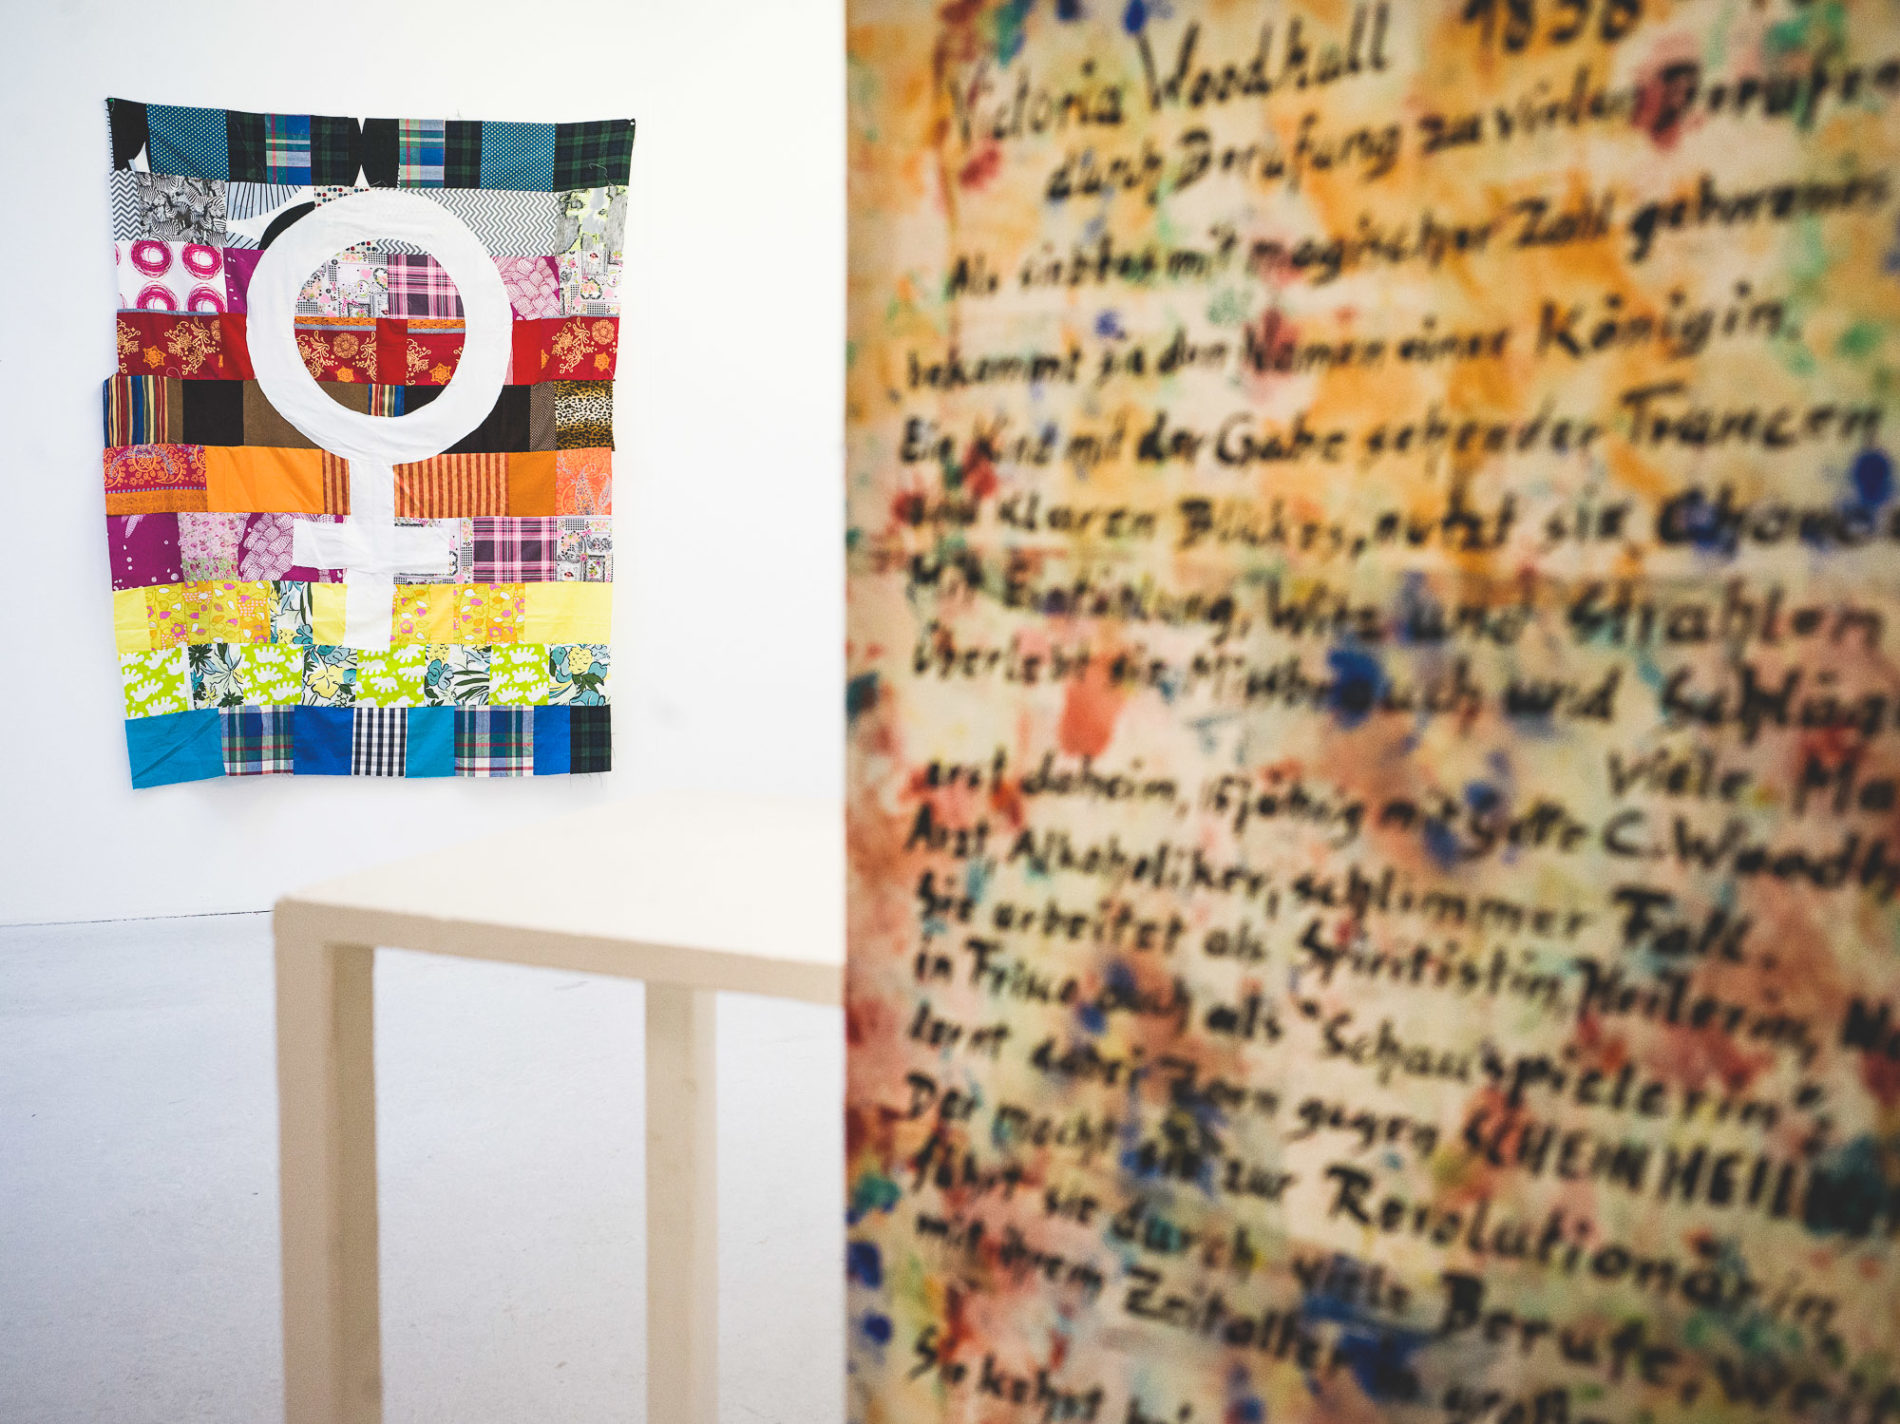 Victoria Woodhull 1838
durch Berufung zu vielen Berufen
Als siebtes mit magischer Zahl geborenes
bekommt sie den Namen einer Königin.
Ein Kind mit der Gabe sehender Trancen
und klaren Blickes, nutzt sie
Mit Einfühlung, Witz und Strahlen
Überlebt sie Missbrauch und Schläg
Viele Ma
erst daheim, 15jährig mit gatte C. Woodh
Arzt, Alkoholiker, schlimmer Fall.
Sie arbeitet als Spiritistin, Heilerin,
in Frisco auch als "Schauspielerin",
lernt dabei Zorn gegen SCHEINHEILI
Der macht sie zur Revolutionärin
führt sie durch viele Berufe, weit
mit ihrem Zeitalter
Sie